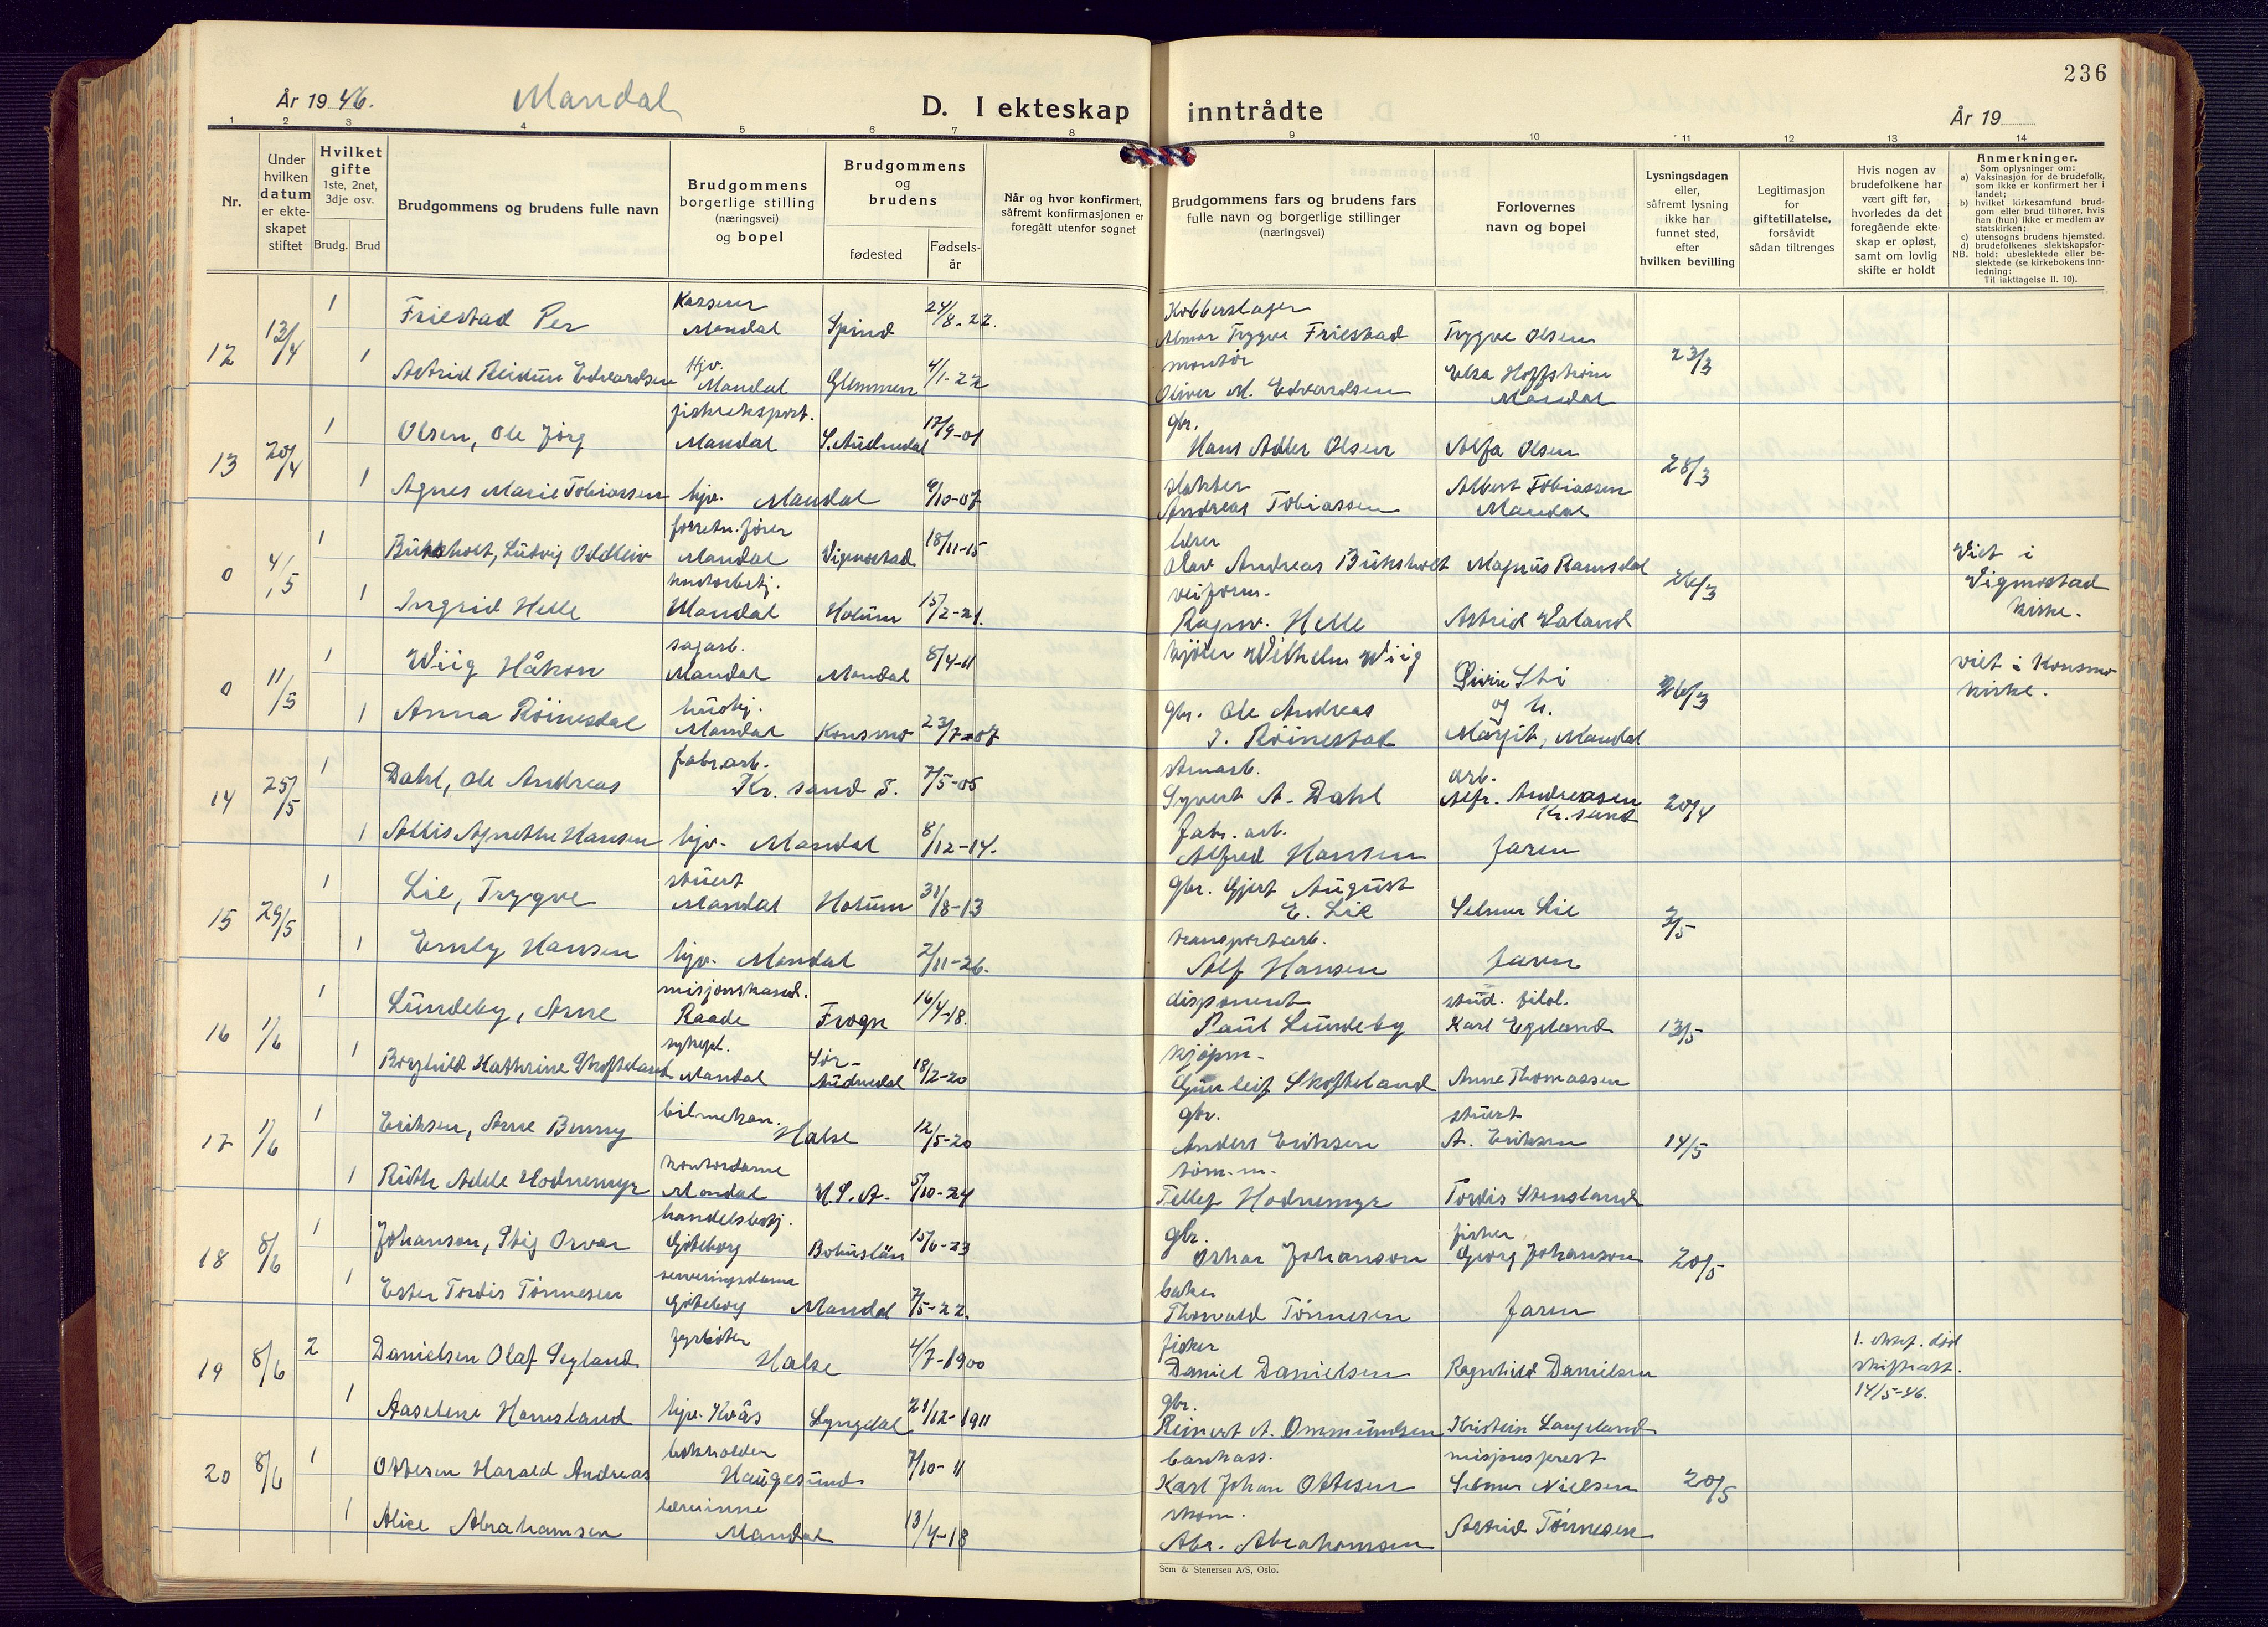 236
År 1946.
Mandal
D. I ekteskap inntrådte
År 19
1 2 3 4 5 6 7 8 9 10 11 12 13 14
Nr.
Under
hvilken
datum
er ekte-
skapet
stiftet
Hvilket
gifte
1ste, 2net,
3dje osv.
Brudg. Brud
Brudgommens og brudens fulle navn
Brudgommens
borgerlige stilling
(næringsvei)
og bopel
Brudgommens
og
brudens
fødested
Fødsels-
år
Når og hvor konfirmert,
såfremt konfirmasjonen er
foregått utenfor sognet
Brudgommens fars og brudens fars
fulle navn og borgerlige stillinger
(næringsvei)
Forlovernes
navn og bopel
Lysningsdagen
eller,
såfremt lysning
ikke har
funnet sted,
efter
hvilken bevilling
Legitimasjon
for
giftetillatelse,
forsåvidt
sådan tiltrenges
Hvis nogen av
brudefolkene har
vært gift før,
hvorledes da det
foregående ekte-
skap er opløst,
samt om lovlig
skifte er holdt
Anmerkninger.
Som oplysninger om:
a) Vaksinasjon for de brudefolk,
som ikke er konfirmert her i
landet;
b) hvilket kirkesamfund brud-
gom eller brud tilhører, hvis
han (hun) ikke er medlem av
statskirken;
c) utensogns brudens hjemsted.
d) brudefolkenes slektskapsfor-
hold: ubeslektede eller be-
NB. slektede (se kirkebokens inn-
ledning:
Til iakttagelse II. 10).
Kasserer 24/8-22. Kobberslager
12 13/4 1 Friestad Per Mandal Spind Almar Trygve Friestad Trygve Olsen 23/3
Hjv. montør
1 Astrid Reidun Edvardsen Mandal Glemmen 4/1-22 Oliver M. Edvardsen Elsa Hoffstrøm
Mandal
fiskeeksport. gbr.
13 20/4 1 Olsen, Ole Jörg Mandal S. Audnedal 17/9-01 Hans Adler Olsen Alfa Olsen 28/3
slakter
1 Agnes Marie Tobiassen hjv. Mandal 9/10-07 Andreas Tobiassen Albert Tobiassen
Mandal
forretn.fører lærer
0 4/5 1 Buksholt, Ludvig Oddleiv Mandal Vigmostad 18/11-15 Olav Andreas Buksholt Magnus Ramsdal 26/3 Viet i
Vigmostad
kirke.
veiform.
1 Ingrid Helle Mandal Holum 15/2-21. Ragnv. Helle Astrid Valand
sagarb.
0 11/5 1 Wiig Håkon Mandal Mandal 8/4-11 kjörer Vilhelm Wiig 26/3 viet i Konsmo
kirke.
og h.
1 Anna Röinesdal Mandal Konsmo 23/7-07 gbr. Ole Andreas
J. Röinestad Margit, Mandal
fabr.arb. arb.
14 25/5 1 Dahl, Ole Andreas Kr.sand S. 7/5-05 Syvert A. Dahl Alfr. Andreasen 20/4
Kr.sand
fabr. arb.
1 Agnethe Hansen hjv. Mandal 8/12-14. Alfred Hansen faren
stuert gbr. Gjert August
15 29/5 1 Lie, Trygve Mandal Holum 31/8-13 E. Lie Selmer Lie 3/5
transportarb.
1 Emly Hansen hjv. Mandal 2/11-26. Alf Hansen faren
misjonskand. disponent stud. filol.
16 1/6 1 Lundeby, Arne Raade Frogn 16/4-18. Paul Lundeby Karl Egeland 13/5
sykepl. Sör- kjöpm.
1 Borghild Kathrine Skofteland Mandal Audnedal 18/2-20 Gunleif Skofteland Anne Thomassen
bilmekan. gbr. stuert
17 1/6 1 Eriksen, Arne Benny Halse 12/5-20 Anders Eriksen A. Eriksen 14/5
kontordame töm.m.
1 Ruth Adele Hodnemyr Mandal U.S.A. 5/10-24 Tellef Hodnemyr Tordis Stensland
handelsbetj. gbr. fisker
18 8/6 1 Johanson, Stig Orvar Göteborg Bohuslän 15/6-23 Oskar Johanson Georg Johanson 20/5
serveringsdame baker
1 Ester Tordis Tönnesen Göteborg Mandal 7/5-22. Thorvald Tönnesen faren
fyrböter fisker 1. ektef. död
19 8/6 2 Danielsen Olaf Seyland Halse 4/7-1900 Daniel Danielsen Ragnhild Danielsen skifteatt.
14/5-46.
gbr.
1 Aaselene Homsland hjv. Kvås Lyngdal 21/12-1911 Reinert A. Ommundsen Kristian Langeland
bokholder bankass. misjonsprest
20 8/6 1 Ottesen Harald Andreas Haugesund 7/10-11 Karl Johan Ottesen Selmer Nielsen 20/5
lærerinne skom.
1 Alice Abrahamsen Mandal 13/4-18 Abr. Abrahamsen Astrid Tönnesen
Sem & Stenersen A/S, Oslo.